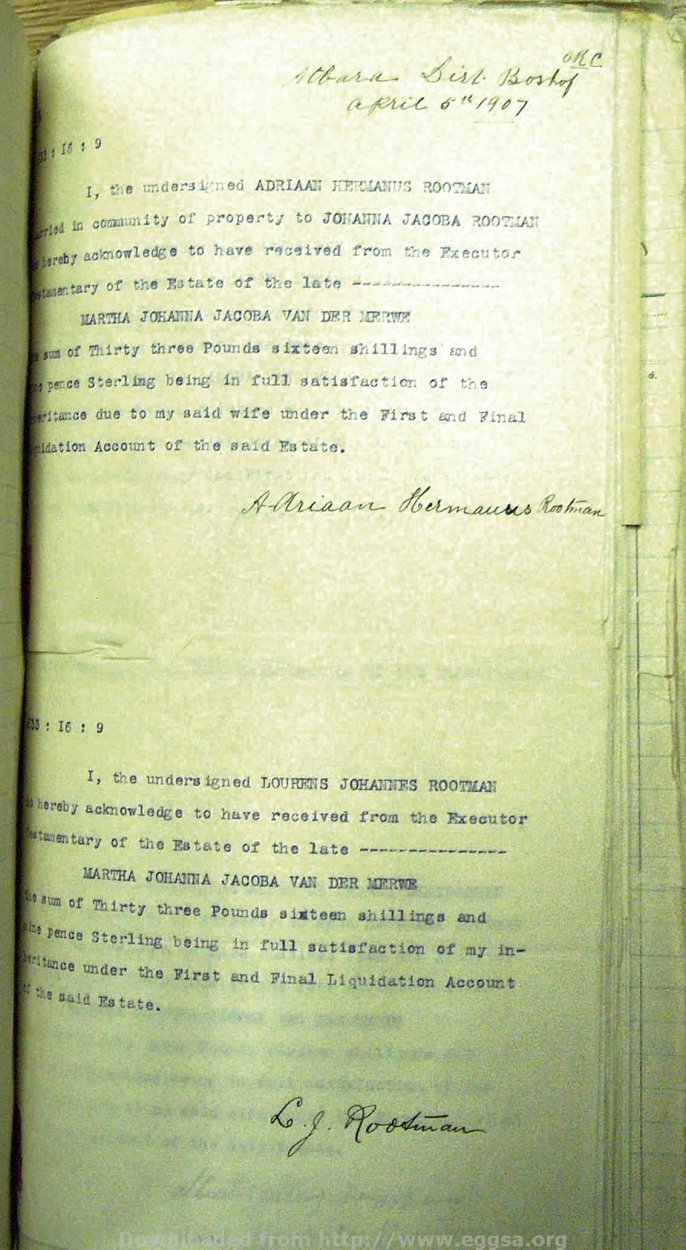 ORC
Atbara Dist. Boshof
April 5th 1907
33 : 16 : 9
I, the undersigned ADRIAAN HERMANUS ROOTMAN
rried in community of property to JOHANNA JACOBA ROOTMAN
hereby acknowledge to have received from the Executor
stamentary of the Estate of the late ---------------
MARTHA JOHANNA JACOBA VAN DER MERWE
sum of Thirty three Pounds sixteen shillings and
pence Sterling being in full satisfaction of the
eritance due to my said wife under the First and Final
uidation Account of the said Estate.
Adriaan Hermanus Rootman
£33 : 16 : 9
I, the undersigned LOURENS JOHANNES ROOTMAN
hereby acknowledge to have received from the Executor
estamentary of the Estate of the late ---------------
MARTHA JOHANNA JACOBA VAN DER MERWE
the sum of Thirty three Pounds sixteen shillings and
nine pence Sterling being in full satisfaction of my in-
eritance under the First and Final Liquidation Account
of the said Estate.
L. J. Rootman
Downloaded from http://www.eggsa.org